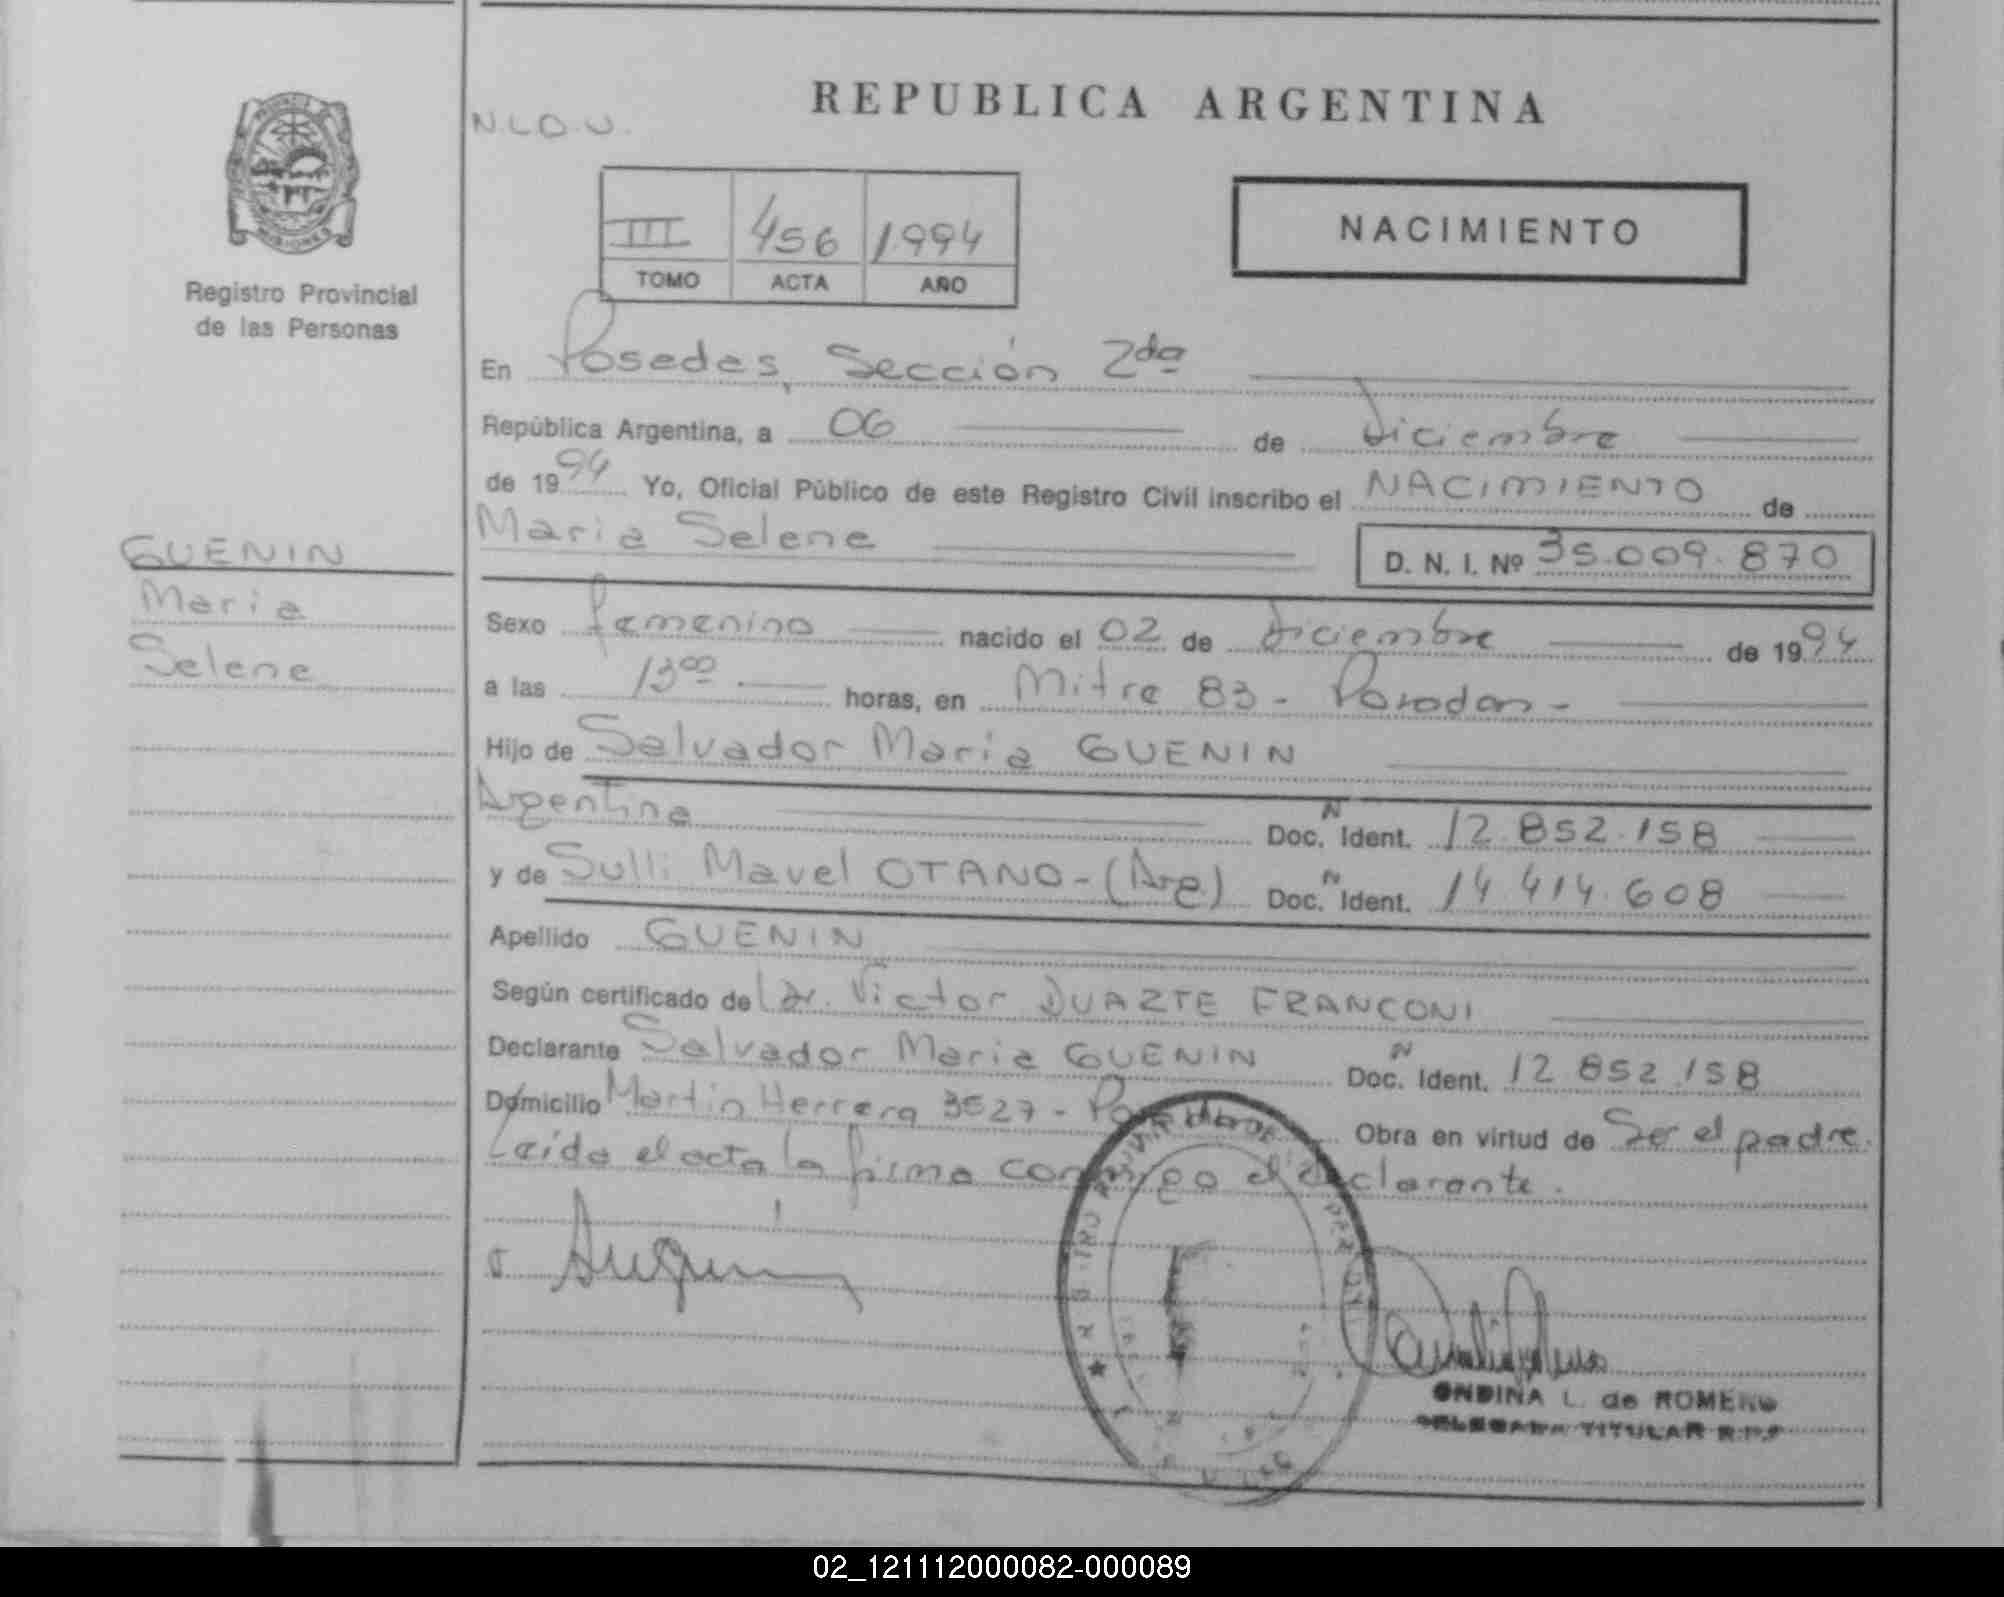 REPUBLICA ARGENTINA
N.L.O.U.
MISIONES
Registro Provincial
de las Personas
III 456 1994
TOMO ACTA AÑO
NACIMIENTO
En Posadas, Sección 2da
República Argentina, a 06 de diciembre
de 1994 Yo, Oficial Público de este Registro Civil inscribo el NACIMIENTO de
Maria Selene
D. N. I. Nº 35.009.870
GUENIN
Maria
Selene
Sexo femenino nacido el 02 de diciembre de 1994
a las 1300 horas, en Mitre 83 - Posadas -
Hijo de Salvador Maria GUENIN
Argentina Doc. N Ident. 12.852.158
y de Sulli Mavel OTANO - (Arg) Doc. N Ident. 14.414.608
Apellido GUENIN
Según certificado de Dr. Victor DUARTE FRANCONI
Declarante Salvador Maria GUENIN Doc. N Ident. 12.852.158
Domicilio Martin Herrera 3527 - Posadas Obra en virtud de Ser el padre.
Leída el acta la firma conmigo el declarante.
ONDINA L. de ROMERO
DELEGADA TITULAR R.P.P
02_121112000082-000089